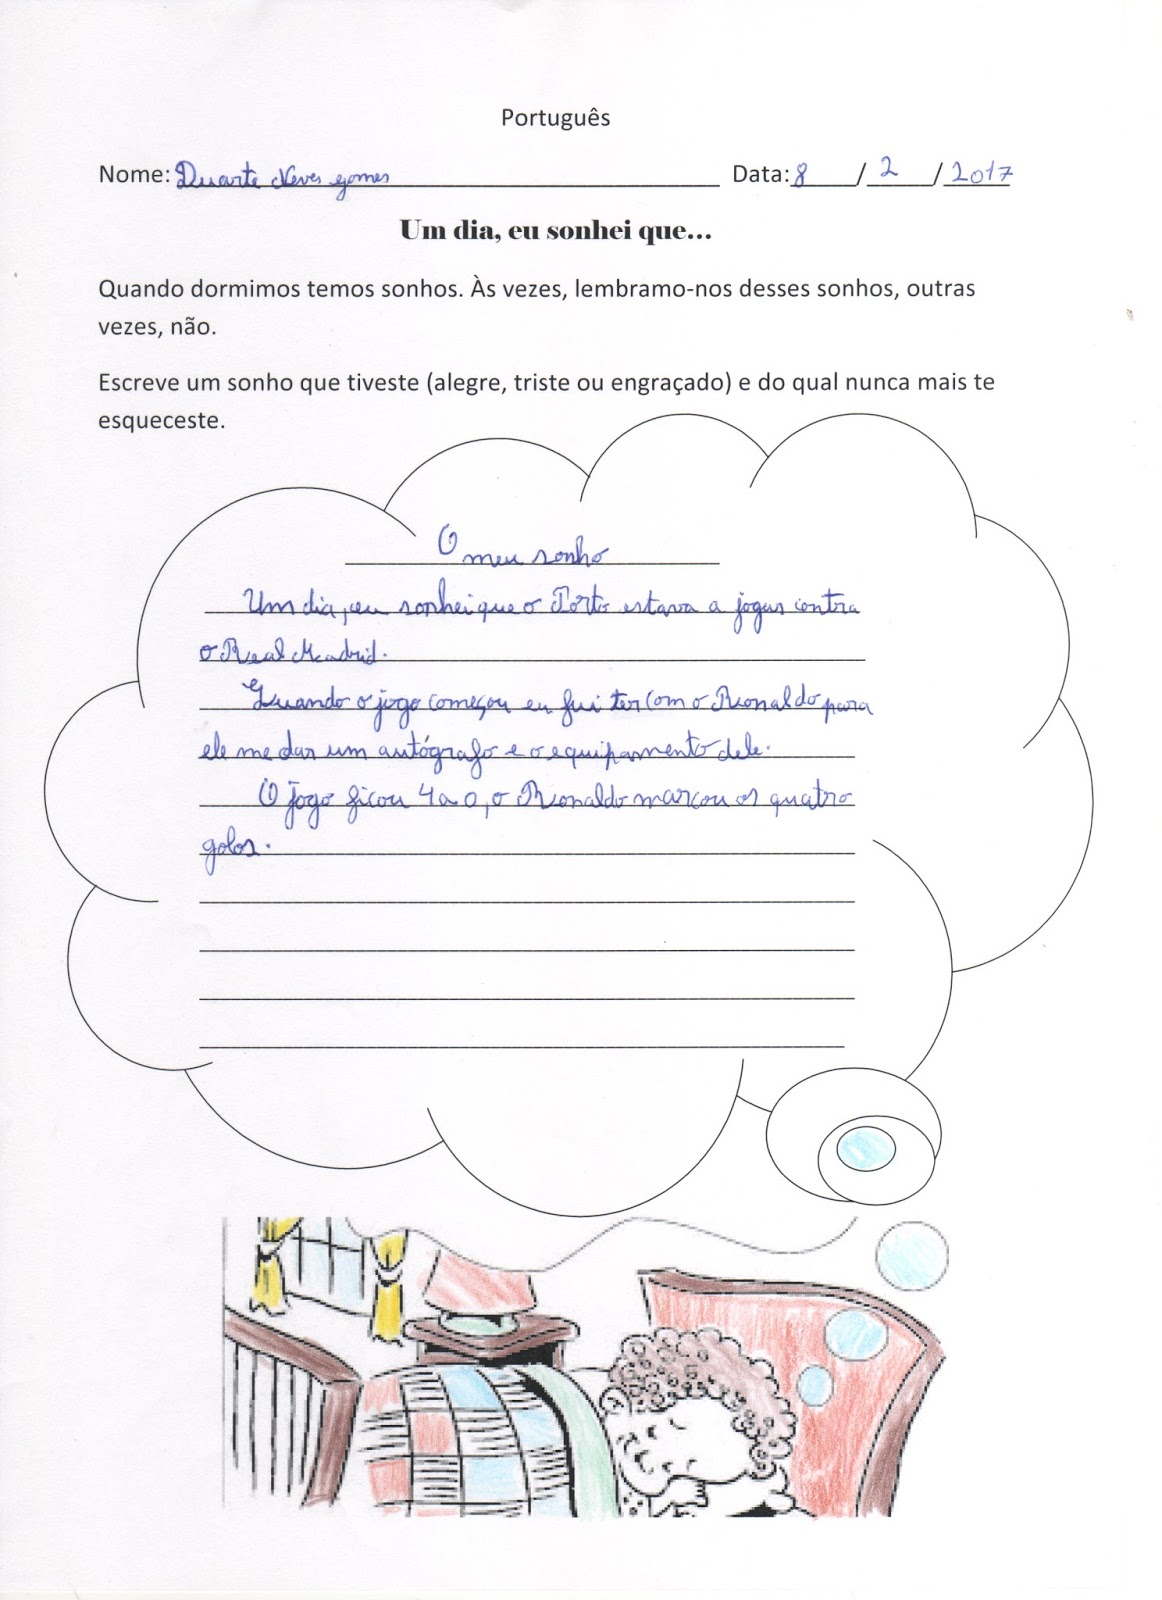 Português
Nome: Duarte Neves gomes Data: 8 / 2 / 2017
Um dia, eu sonhei que...
Quando dormimos temos sonhos. Às vezes, lembramo-nos desses sonhos, outras
vezes, não.
Escreve um sonho que tiveste (alegre, triste ou engraçado) e do qual nunca mais te
esqueceste.
O meu sonho
Um dia, eu sonhei que o Porto estava a jogar contra
o Real Madrid.
Quando o jogo começou eu fui ter com o Ronaldo para
ele me dar um autógrafo e o equipamento dele.
O jogo ficou 4 a 0, o Ronaldo marcou os quatro
golos.